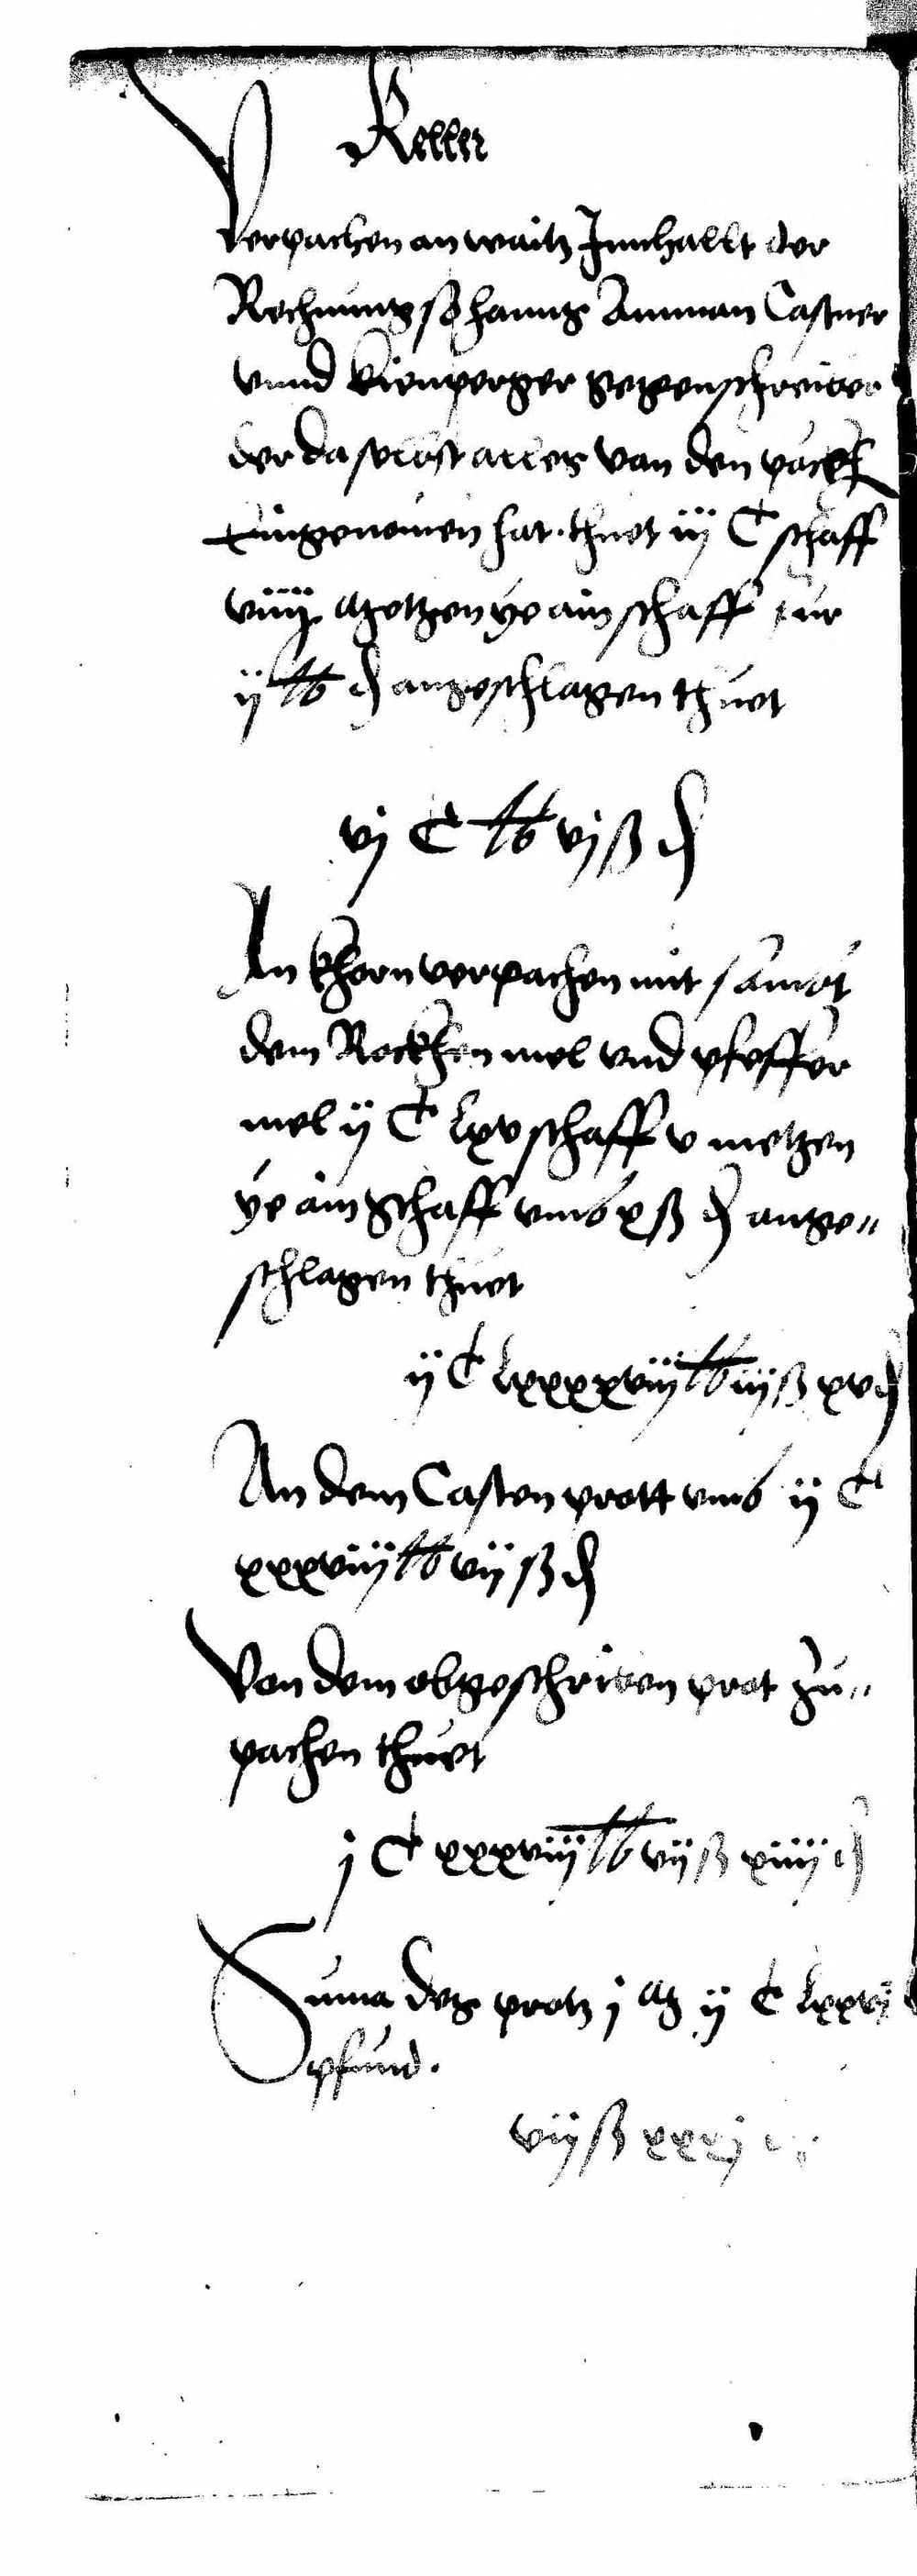 Keller
Verpachen an waitz Innhallt der
Rechnung ß hanns Amman Castner
vnnd kienperger gegenschreiber
der daselbst alles von den päckh
Eingenomen hat. thuet iij C schaff
viiij Metzen ye ain schaff für
ij lb d angeschlagen thuet
vj C lb vj ß d
An khorn verpachen mit sambt
dem Rockhen mel vnd pfeffer
mel ij C lxv schaff v metzen
ye ain schaff vmb x ß d ange„
schlagen thuet
ij C lxxxxviij lb iij ß xv d
An dem Casten prott vmb ij C
xxxviiij lb vij ß d
Von dem obgeschriben prot zu„
pachen thuet
j C xxxviiij lb vij ß xiiij d
Suma des protz j M ij C lxxvj
pfund.
vij ß xxj